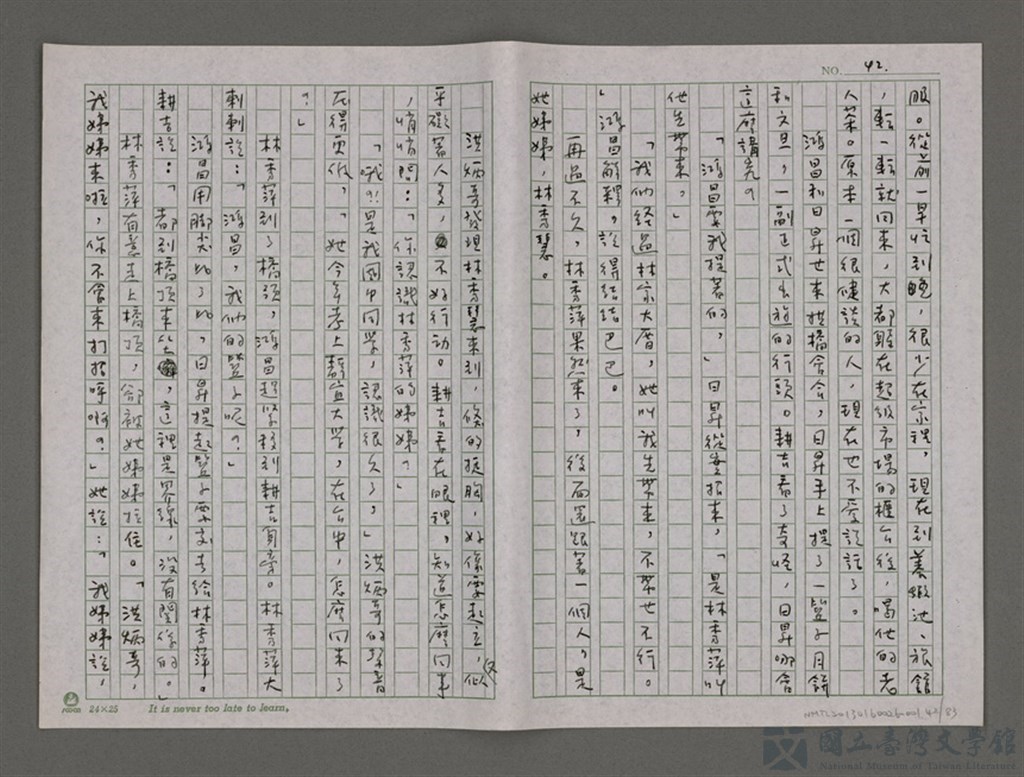 NO. 42.
服。從前一早忙到晚,很少在家裡,現在到養蝦池、旅館
,轉一轉就回來,大都躲在超級市場的櫃台後,喝他的老
人茶。原本一個很健談的人,現在也不愛說話了。
鴻昌和日昇也來拱橋會合,日昇手上提了一籃子月餅
和文旦,一副正式出遊的行頭。耕吉看了奇怪,日昇哪會
這麼講究?
「鴻昌要我提著的,」日昇從實招來,「是林秀萍叫
他先帶來。」
「我們經過林家大厝,她叫我先帶來,不帶也不行。
」鴻昌解釋,說得結結巴巴。
再過不久,林秀萍果然來了,後面還跟著一個人,是
她姊姊,林秀慧。
洪炳哥發現林秀慧來到,倏的挺胸,好像要起立,又似
乎礙著人多,不好行動。耕吉看在眼裡,知道怎麼回事
,悄悄問:「你認識林秀萍的姊姊?」
「哦?!是我國中同學,認識很久了,」洪炳哥的聲音
壓得更低,「她今年考上靜宜大學,在台中,怎麼回來了
?」
林秀萍到了橋頭,鴻昌趕緊移到耕吉身旁。林秀萍大
剌剌說:「鴻昌,我們的籃子呢?」
鴻昌用腳尖比了比,日昇提起籃子要交去給林秀萍。
耕吉說:「都到橋頂來坐,這裡是界線,沒有關係的。」
林秀萍有意走上橋頂,卻被她姊姊拉住。「洪炳哥,
我姊姊來啦,你不會來打招呼啊?」她說:「我姊姊說,
24×25 It is never too late to learn.
NMTL20130160026-001 42/83
國立臺灣文學館
National Museum of Taiwan Literature